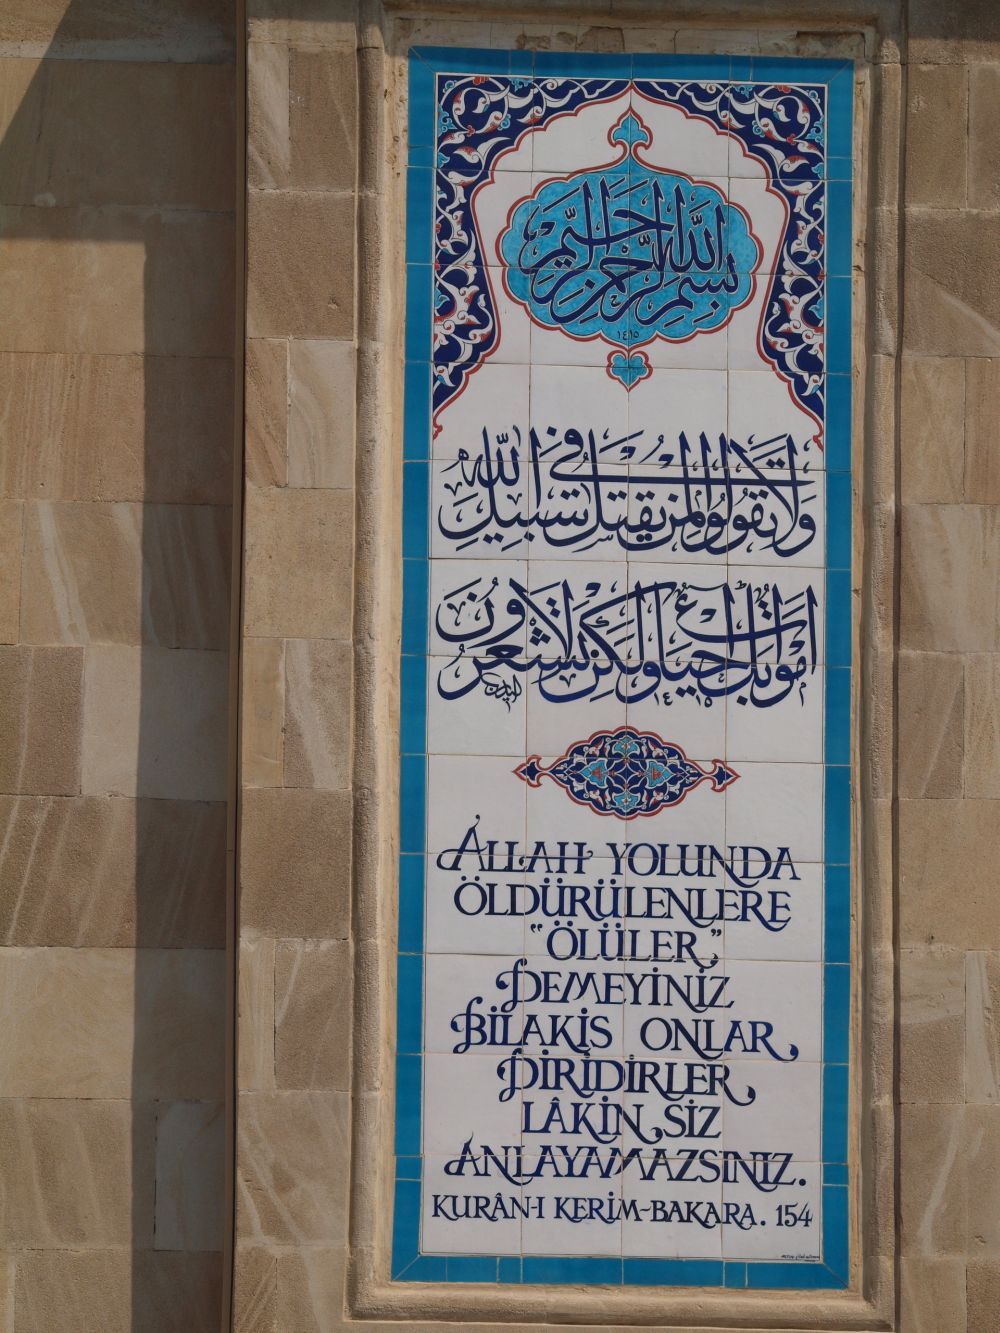 بسم الله الرحمن الرحيم
١٤١٥
ولا تقولوا لمن يقتل في سبيل الله
اموات بل احياء ولكن لا تشعرون
١٤١٥
ALLAH YOLUNDA
ÖLDÜRÜLENLERE
“ÖLÜLER”
DEMEYİNİZ
BİLAKİS ONLAR
DİRİDİRLER
LÂKİN SİZ
ANLAYAMAZSINIZ.
KURÂN-I KERİM-BAKARA. 154